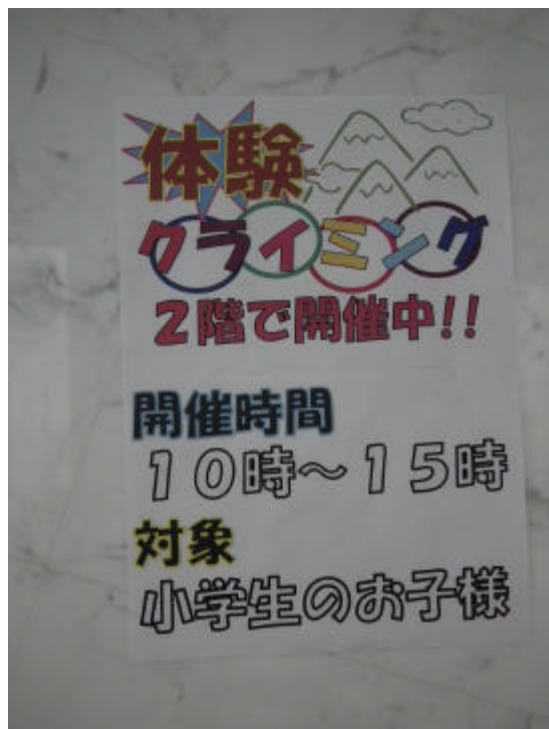 体験
クライミング
2階で開催中!!
開催時間
10時～15時
対象
小学生のお子様